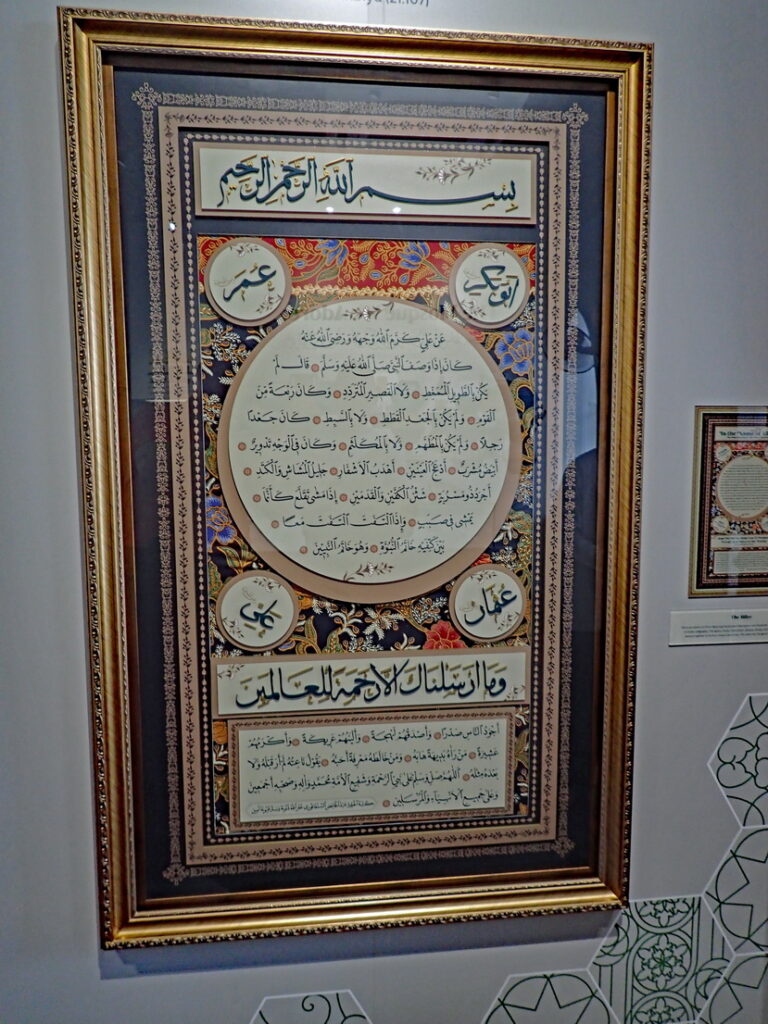 (21:107)
بِسْمِ اللَّهِ الرَّحْمَنِ الرَّحِيمِ
ابوبكر
عمر
عَنْ عَلِيٍّ كَرَّمَ اللَّهُ وَجْهَهُ وَرَضِيَ اللَّهُ عَنْهُ
كَانَ إِذَا وَصَفَ النَّبِيَّ صَلَّى اللَّهُ عَلَيْهِ وَسَلَّمَ قَالَ لَمْ
يَكُنْ بِالطَّوِيلِ الْمُمَّغِطِ وَلَا الْقَصِيرِ الْمُتَرَدِّدِ وَكَانَ رَبْعَةً مِنَ
الْقَوْمِ وَلَمْ يَكُنْ بِالْجَعْدِ الْقَطَطِ وَلَا بِالسَّبِطِ كَانَ جَعْدًا
رَجِلًا وَلَمْ يَكُنْ بِالْمُطَهَّمِ وَلَا بِالْمُكَلْثَمِ وَكَانَ فِي الْوَجْهِ تَدْوِيرٌ
أَبْيَضُ مُشْرَبٌ أَدْعَجُ الْعَيْنَيْنِ أَهْدَبُ الْأَشْفَارِ جَلِيلُ الْمُشَاشِ وَالْكَتَدِ
أَجْرَدُ ذُو مَسْرُبَةٍ شَثْنُ الْكَفَّيْنِ وَالْقَدَمَيْنِ إِذَا مَشَى تَقَلَّعَ كَأَنَّمَا
يَمْشِي فِي صَبَبٍ وَإِذَا الْتَفَتَ الْتَفَتَ مَعًا
بَيْنَ كَتِفَيْهِ خَاتَمُ النُّبُوَّةِ وَهُوَ خَاتَمُ النَّبِيِّينَ
عثمان
علي
وَمَا أَرْسَلْنَاكَ إِلَّا رَحْمَةً لِلْعَالَمِينَ
أَجْوَدُ النَّاسِ صَدْرًا وَأَصْدَقُهُمْ لَهْجَةً وَأَلْيَنُهُمْ عَرِيكَةً وَأَكْرَمُهُمْ
عَشِيرَةً مَنْ رَآهُ بَدِيهَةً هَابَهُ وَمَنْ خَالَطَهُ مَعْرِفَةً أَحَبَّهُ يَقُولُ نَاعِتُهُ لَمْ أَرَ قَبْلَهُ وَلَا
بَعْدَهُ مِثْلَهُ اللَّهُمَّ صَلِّ وَسَلِّمْ عَلَى نَبِيِّ الرَّحْمَةِ وَشَفِيعِ الْأُمَّةِ مُحَمَّدٍ وَآلِهِ وَصَحْبِهِ أَجْمَعِينَ
وَعَلَى جَمِيعِ الْأَنْبِيَاءِ وَالْمُرْسَلِينَ
The Hilye